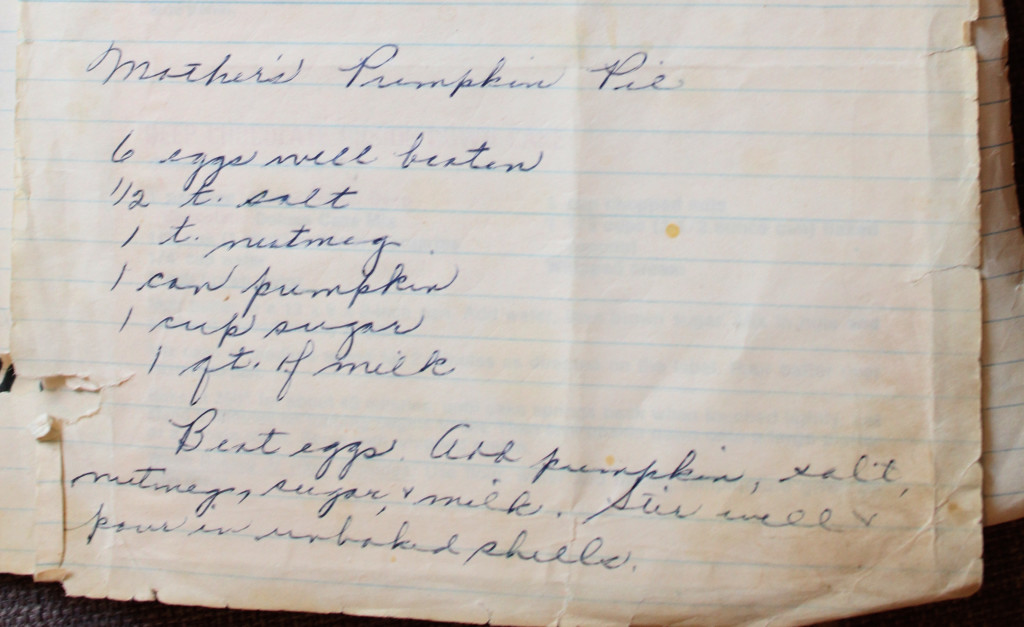 Mother's Pumpkin Pie
6 eggs well beaten
1/2 t. salt
1 t. nutmeg
1 can pumpkin
1 cup sugar
1 qt. of milk
Beat eggs. Add pumpkin, salt,
nutmeg, sugar, & milk. Stir well &
pour in unbaked shells.